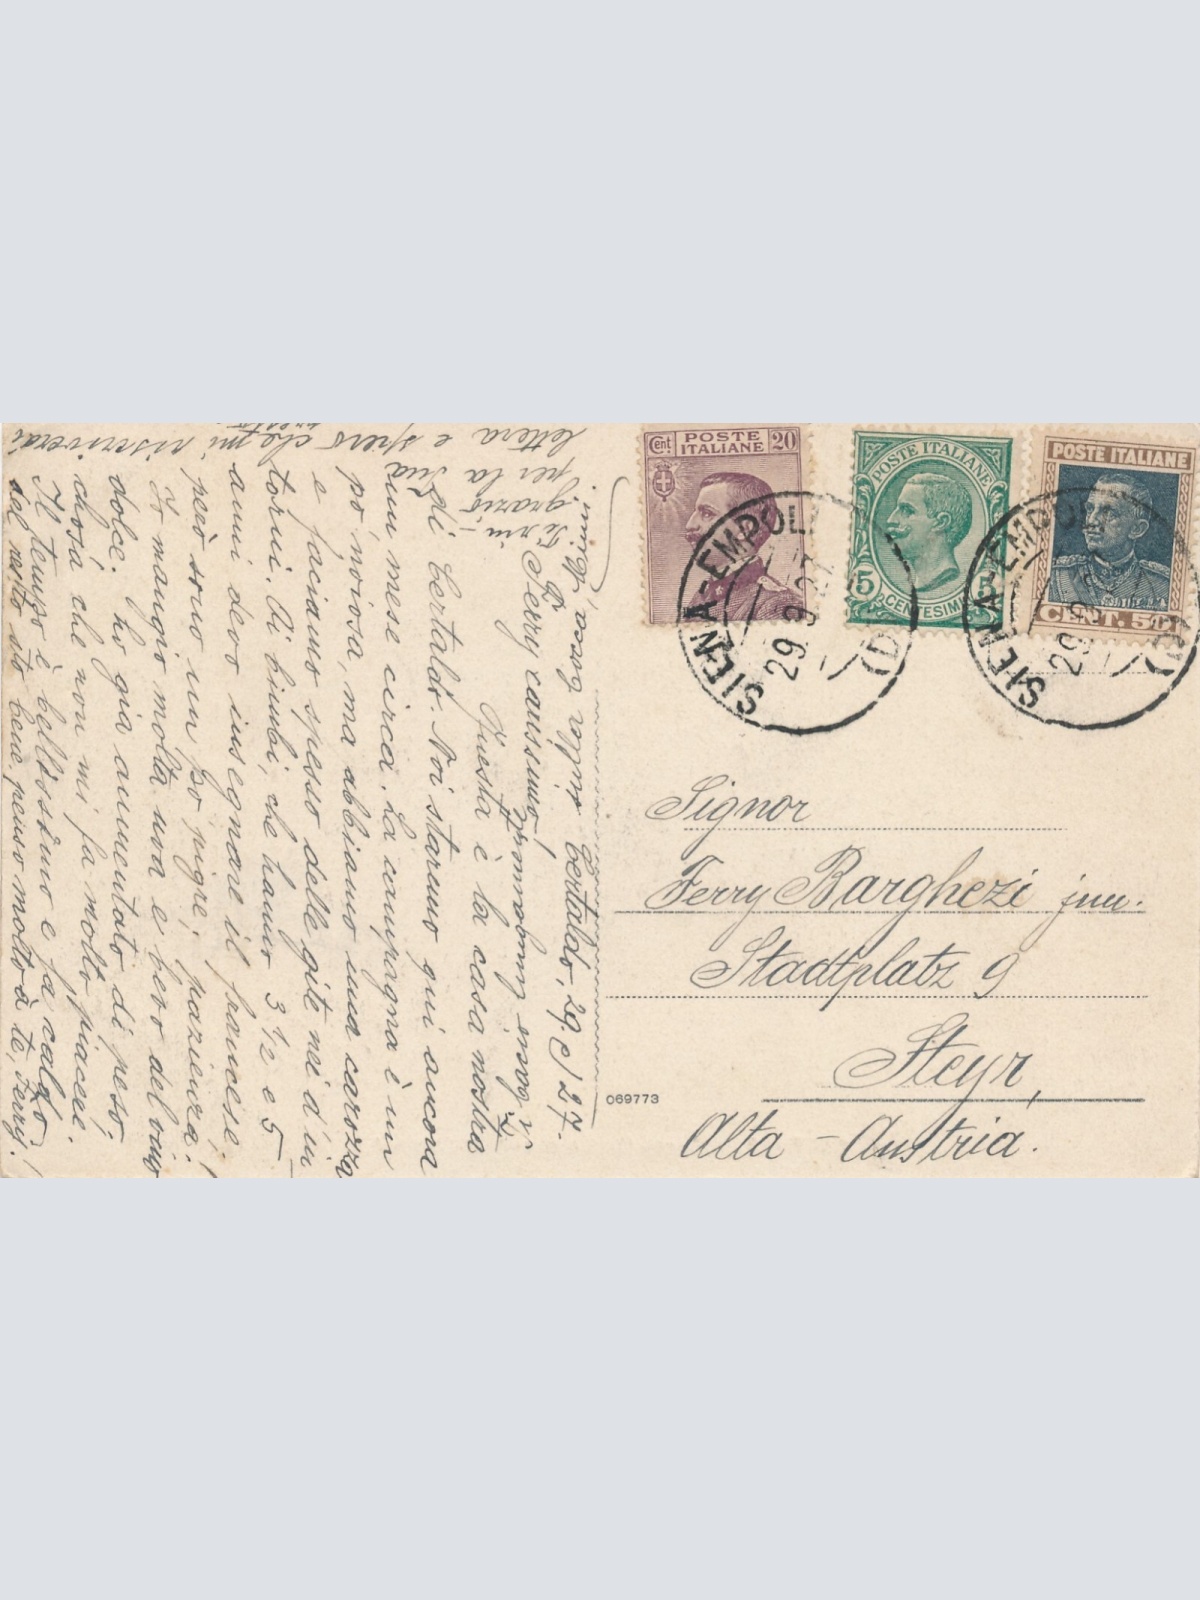 Cent POSTE 20
ITALIANE
POSTE ITALIANE
5 5
CENTESIMI
POSTE ITALIANE
CENT. 50
SIENA-EMPOLI
29.9.27
(D)
SIENA-EMPOLI
29.9
Signor
Ferry Barghezi jun.
Stadtplatz 9
Steyr,
Alta - Austria.
069773
Certaldo, 29. 9/27.
Ferry carissimo!
Questa è la casa nostra
di Certaldo. Noi staremo qui ancora
un mese circa. La campagna è un
pò noiosa, ma abbiamo una carozza
e faciamo spesso delle gite nei d'in
torni. Ai bimbi, che hanno 3 1/2 e 5
anni devo insegnare il francese.
però sono un po pigre; pazienza!
Io mangio molta uva e bevo del vino
dolce. ho gia aumentato di peso,
chosà che non mi fa molto piacere.
Il tempo è bellissimo e fa caldo
del resto sto bene penso molto à te, Ferry!
grazio
per la Sua
lettera e spero che mi riscriverai
presto